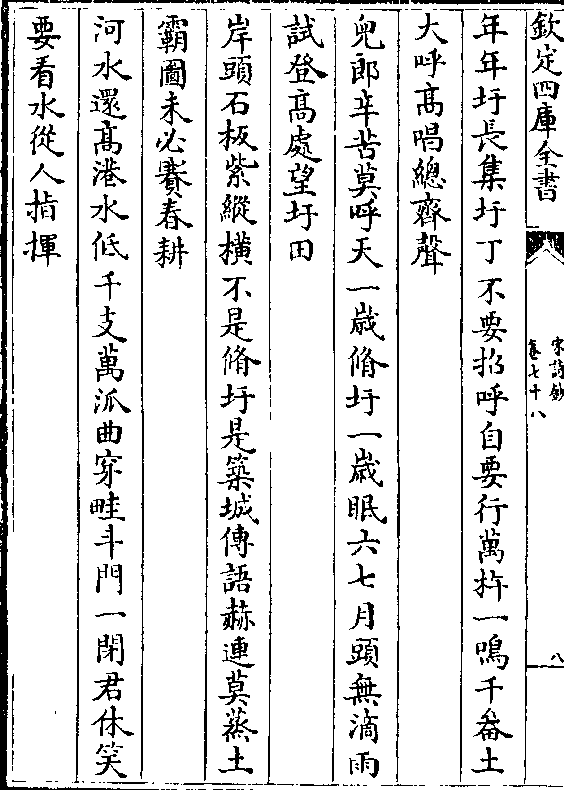 欽定四庫全書
宋詩鈔
卷七十八
八
年年圩長集圩丁不要招呼自要行萬杵一鳴千畚土
大呼髙唱總齊聲
兒郎辛苦莫呼天一歳脩圩一歳眠六七月頭無滴雨
試登髙處望圩田
岸頭石板紫縱横不是脩圩是築城傳語赫連莫蒸土
霸圖未必賽春耕
河水還髙港水低千支萬派曲穿畦斗門一閉君休笑
要看水從人指揮